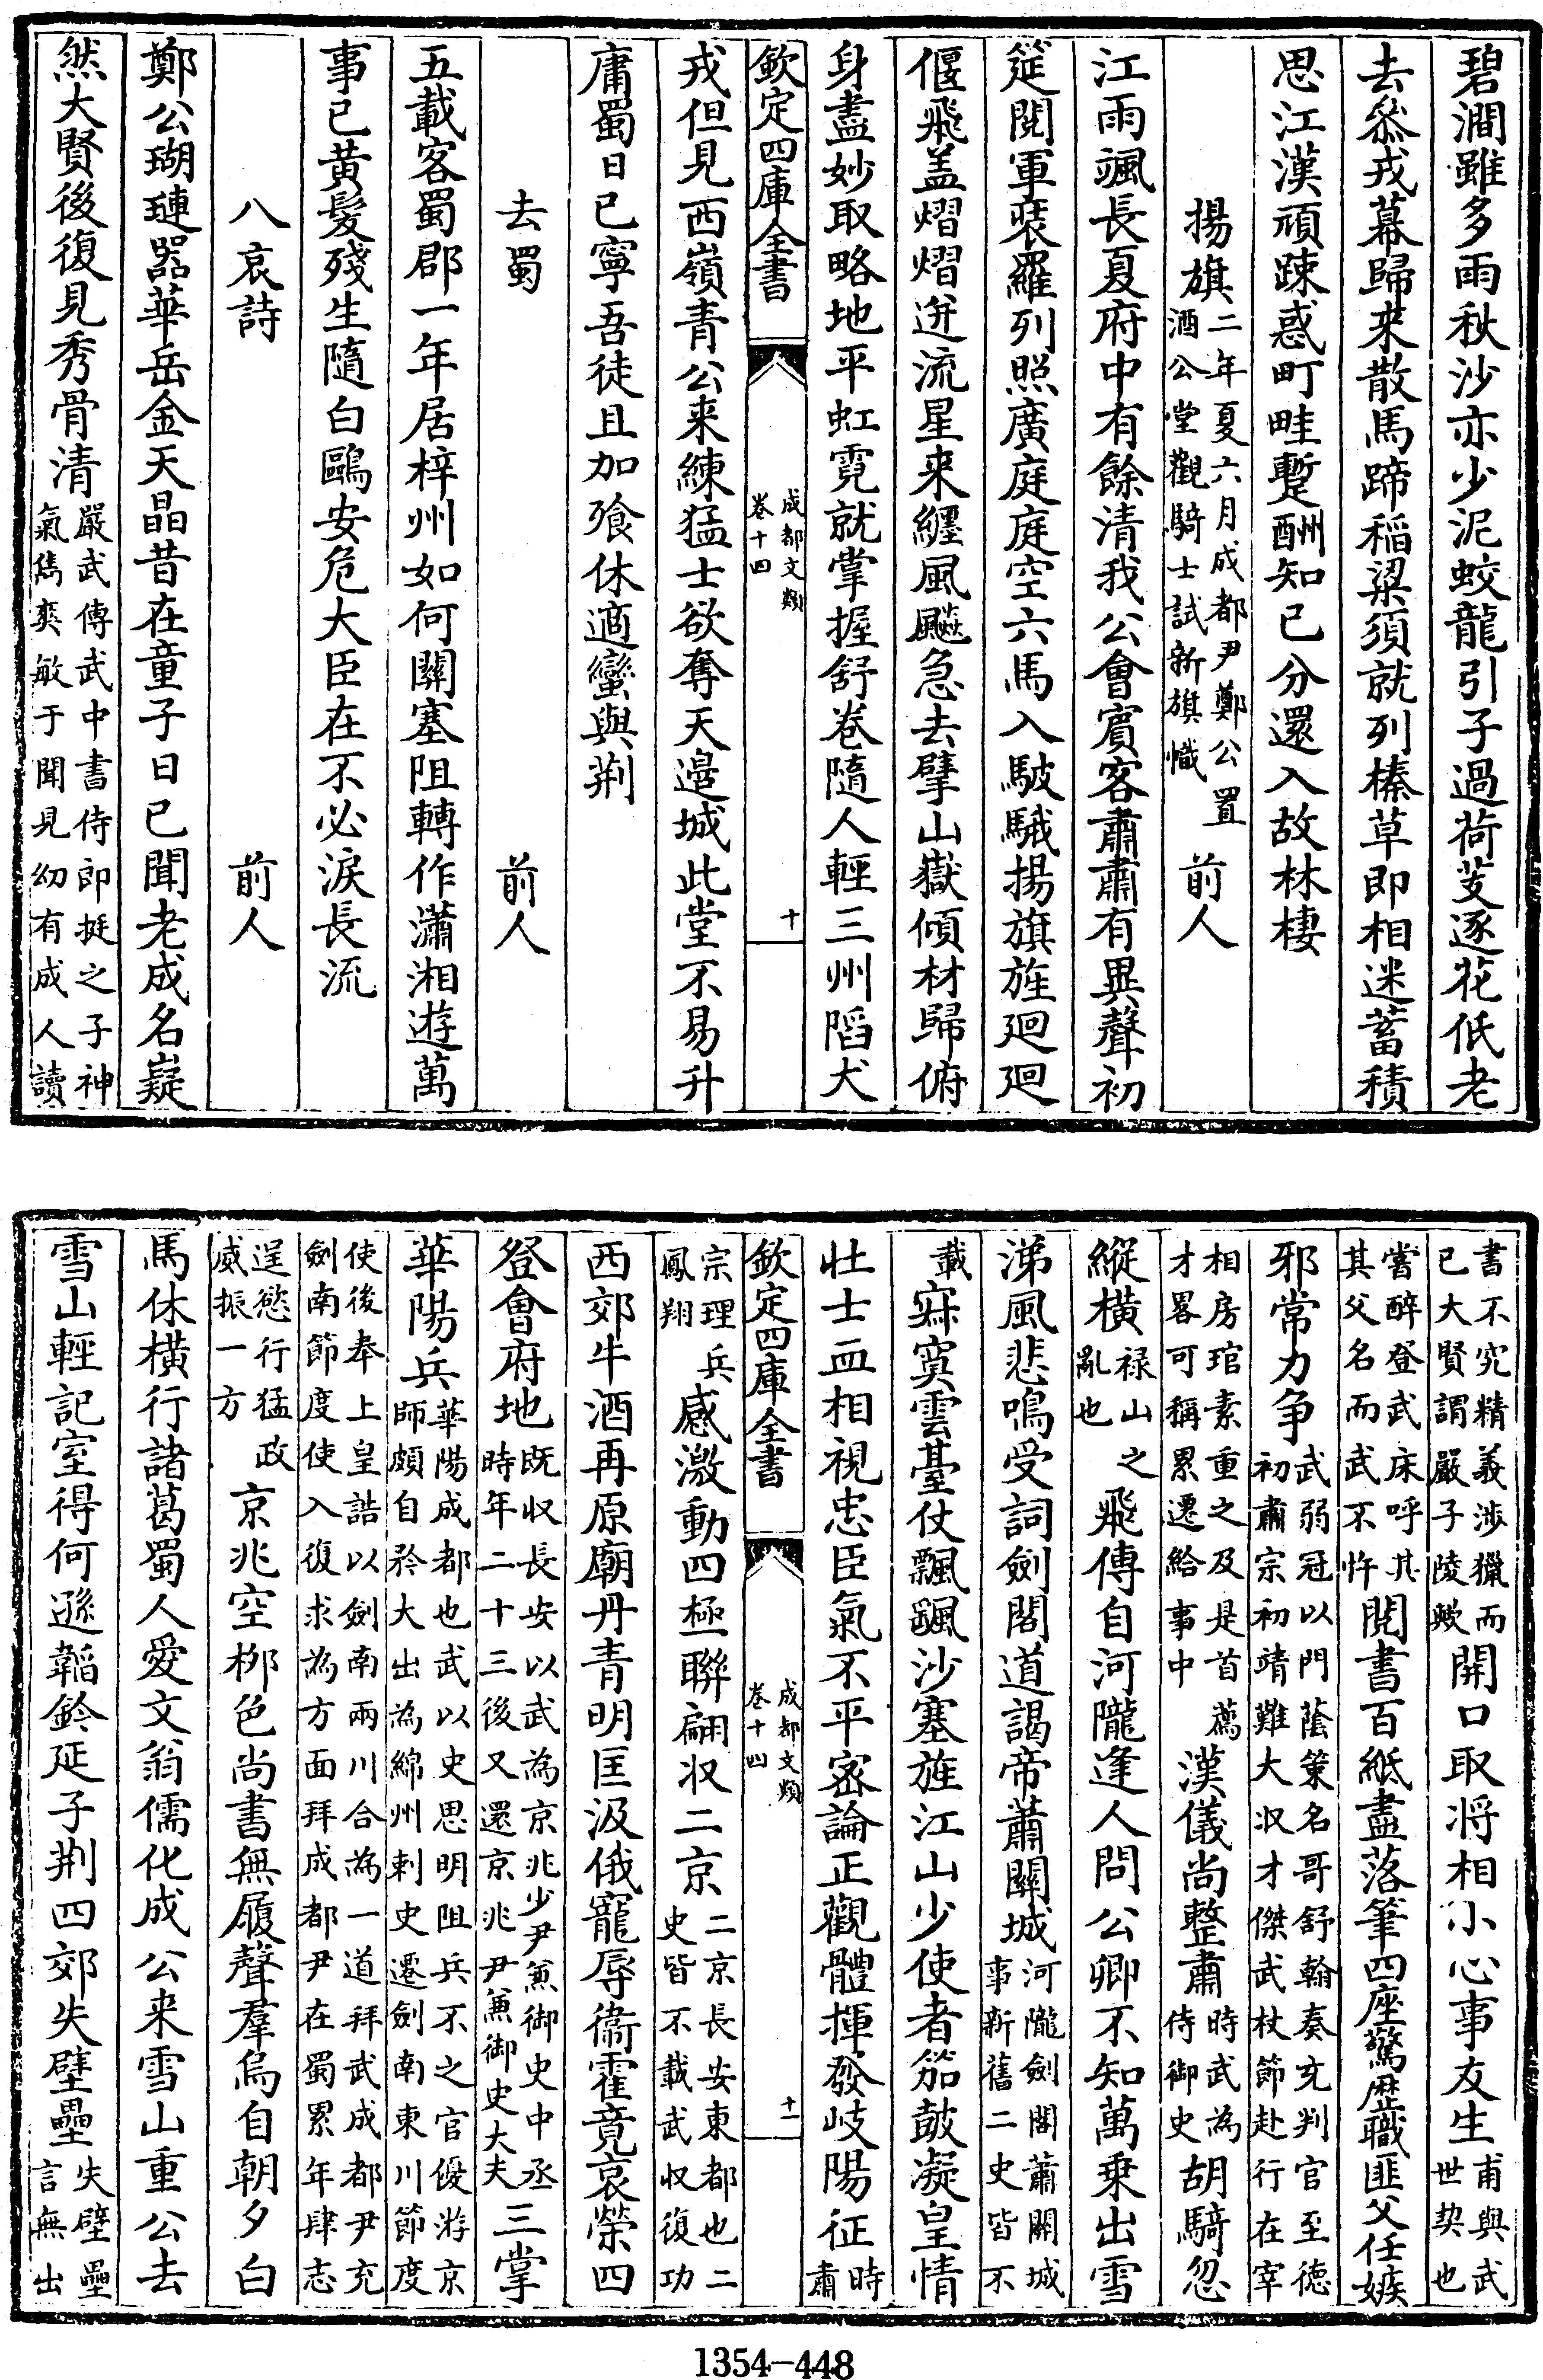 碧澗雖多雨秋沙亦少泥蛟龍引子過荷芰逐花低老
去叅戎幕歸來散馬蹄稻粱須就列榛草即相迷蓄積
思江漢頑疎惑町畦暫酬知已分還入故林棲
揚旗二年夏六月成都尹鄭公置酒公堂觀騎士試新旗幟 前人
江雨颯長夏府中有餘清我公會賓客肅肅有異聲初
筵閱軍裝羅列照廣庭庭空六馬入駊騀揚旗旌廻廻
偃飛盖熠熠迸流星来纒風飈急去擘山嶽傾材歸俯
身盡妙取略地平虹霓就掌握舒卷隨人輕三州陷犬
欽定四庫全書 成都文類卷十四 十
戎但見西嶺青公来練猛士欲奪天邉城此堂不易升
庸蜀日已寧吾徒且加飱休適蠻與荆
去蜀 前人
五載客蜀郡一年居梓州如何關塞阻轉作瀟湘遊萬
事已黄髪殘生隨白鷗安危大臣在不必淚長流
八哀詩 前人
鄭公瑚璉器華岳金天晶昔在童子日已聞老成名嶷
然大賢後復見秀骨清嚴武傳武中書侍郎挺之子神氣雋爽敏于聞見幼有成人讀
書不究精義涉獵而已大賢謂嚴子陵歟開口取将相小心事友生甫與武世契也
嘗醉登武床呼其其父名而武不忤閱書百紙盡落筆四座驚歴職匪父任嫉
邪常力争武弱冠以門蔭策名哥舒翰奏充判官至徳初肅宗初靖難大収才傑武杖節赴行在宰
相房琯素重之及是首薦才畧可稱累遷給事中漢儀尚整肅時武為侍御史胡騎忽
縱横禄山之亂也飛傳自河隴逢人問公卿不知萬乗出雪
涕風悲鳴受詞劍閣道謁帝蕭關城河隴劍閣蕭關城事新舊二史皆不
載寂寞雲臺仗飄颻沙塞旌江山少使者笳皷凝皇情
壮士血相視忠臣氣不平宻論正觀體揮發岐陽征時肅
欽定四庫全書 成都文類卷十四 十一
宗理兵鳳翔感激動四極聯翩収二京二京長安東都也二史皆不載武収復功
西郊牛酒再原廟丹青明匡汲俄寵辱衞霍竟哀榮四
登會府地既収長安以武為京兆少尹兼御史中丞時年二十三後又還京兆尹兼御史大夫三掌
華陽兵華陽成都也武以史思明阻兵不之官優游京師頗自矜大出為綿州刺史遷劍南東川節度
使後奉上皇誥以劍南兩川合為一道拜武成都尹充劍南節度使入復求為方面拜成都尹在蜀累年肆志
逞慾行猛政威振一方京兆空栁色尚書無履聲羣烏自朝夕白
馬休横行諸葛蜀人愛文翁儒化成公来雪山重公去
雪山輕記室得何遜韜鈐延子荆四郊失壁壘失壁壘言無出
1354-448